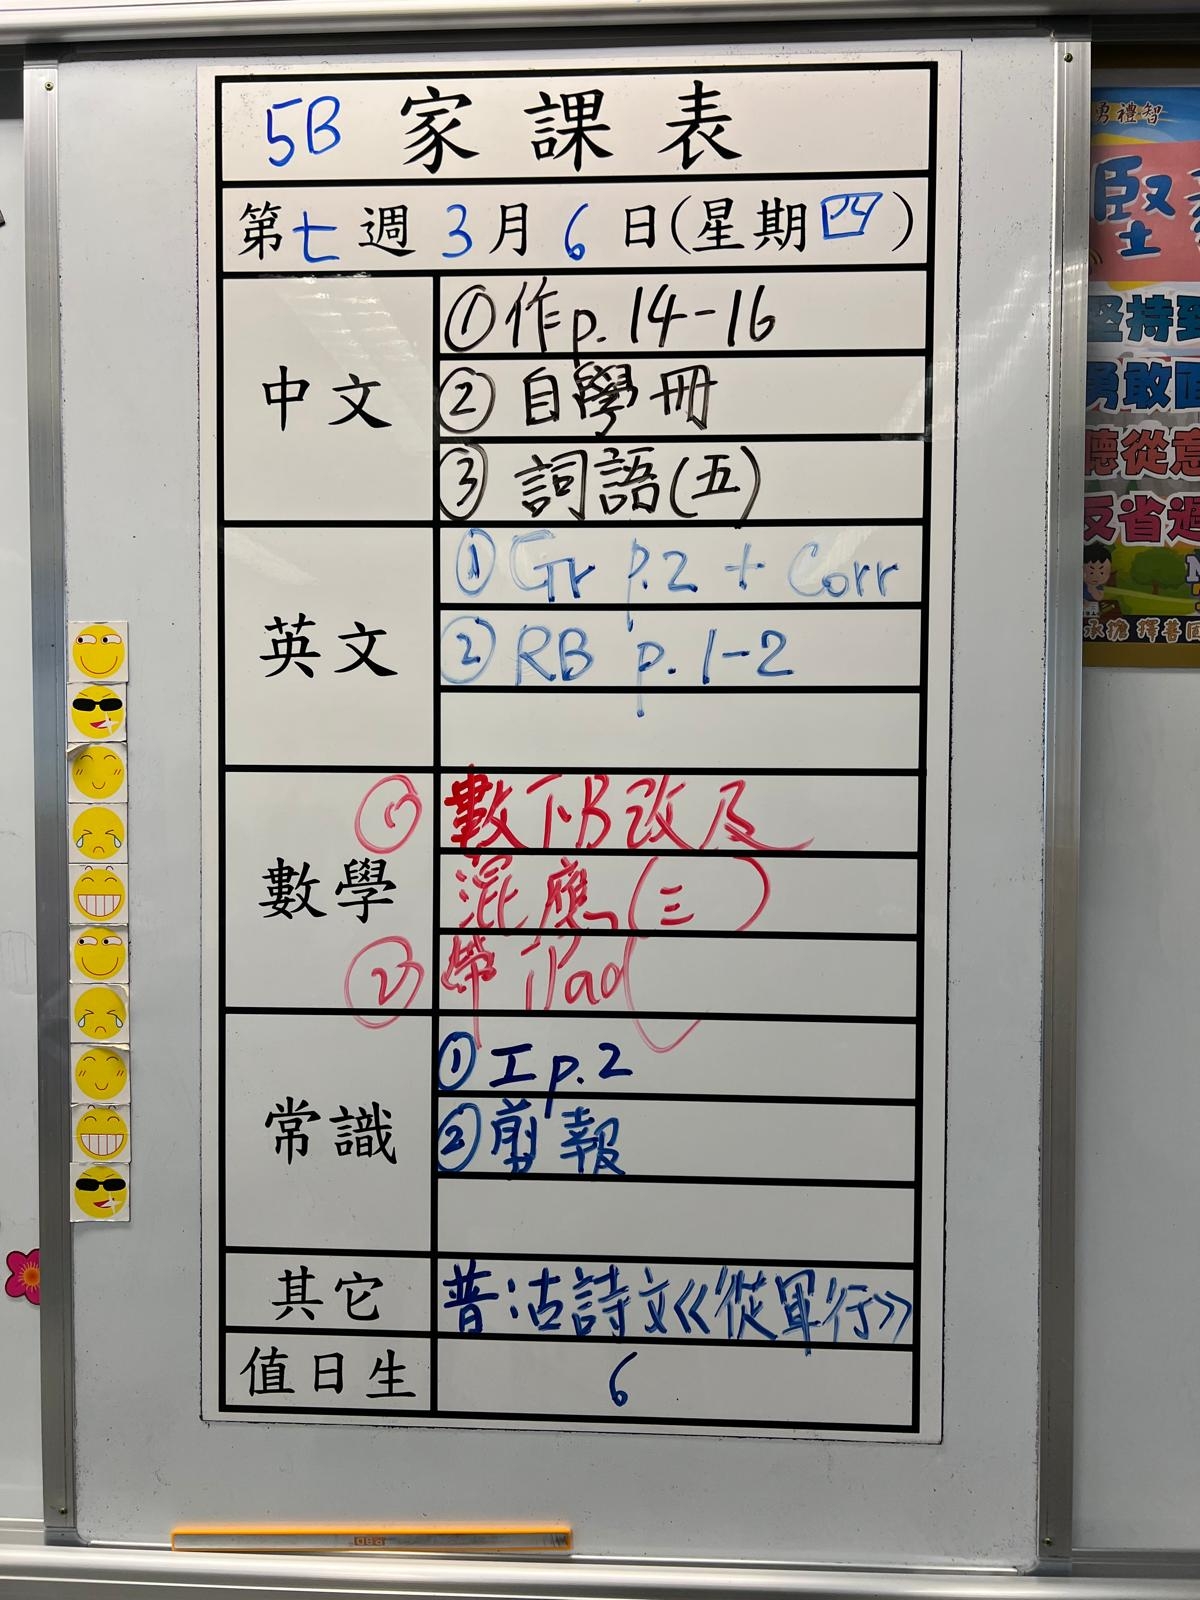 5B 家課表
第七週 3月6日(星期四)
中文
①作p.14-16
②自學冊
③詞語(五)
英文
①Gr p.2 + Corr
②RB p.1-2
數學
①數下B改及
混應(三)
②帶iPad
常識
①工p.2
②剪報
其它
普:古詩文《從軍行》
值日生
6
勇禮智
堅
堅持
勇敢
聽從
反省